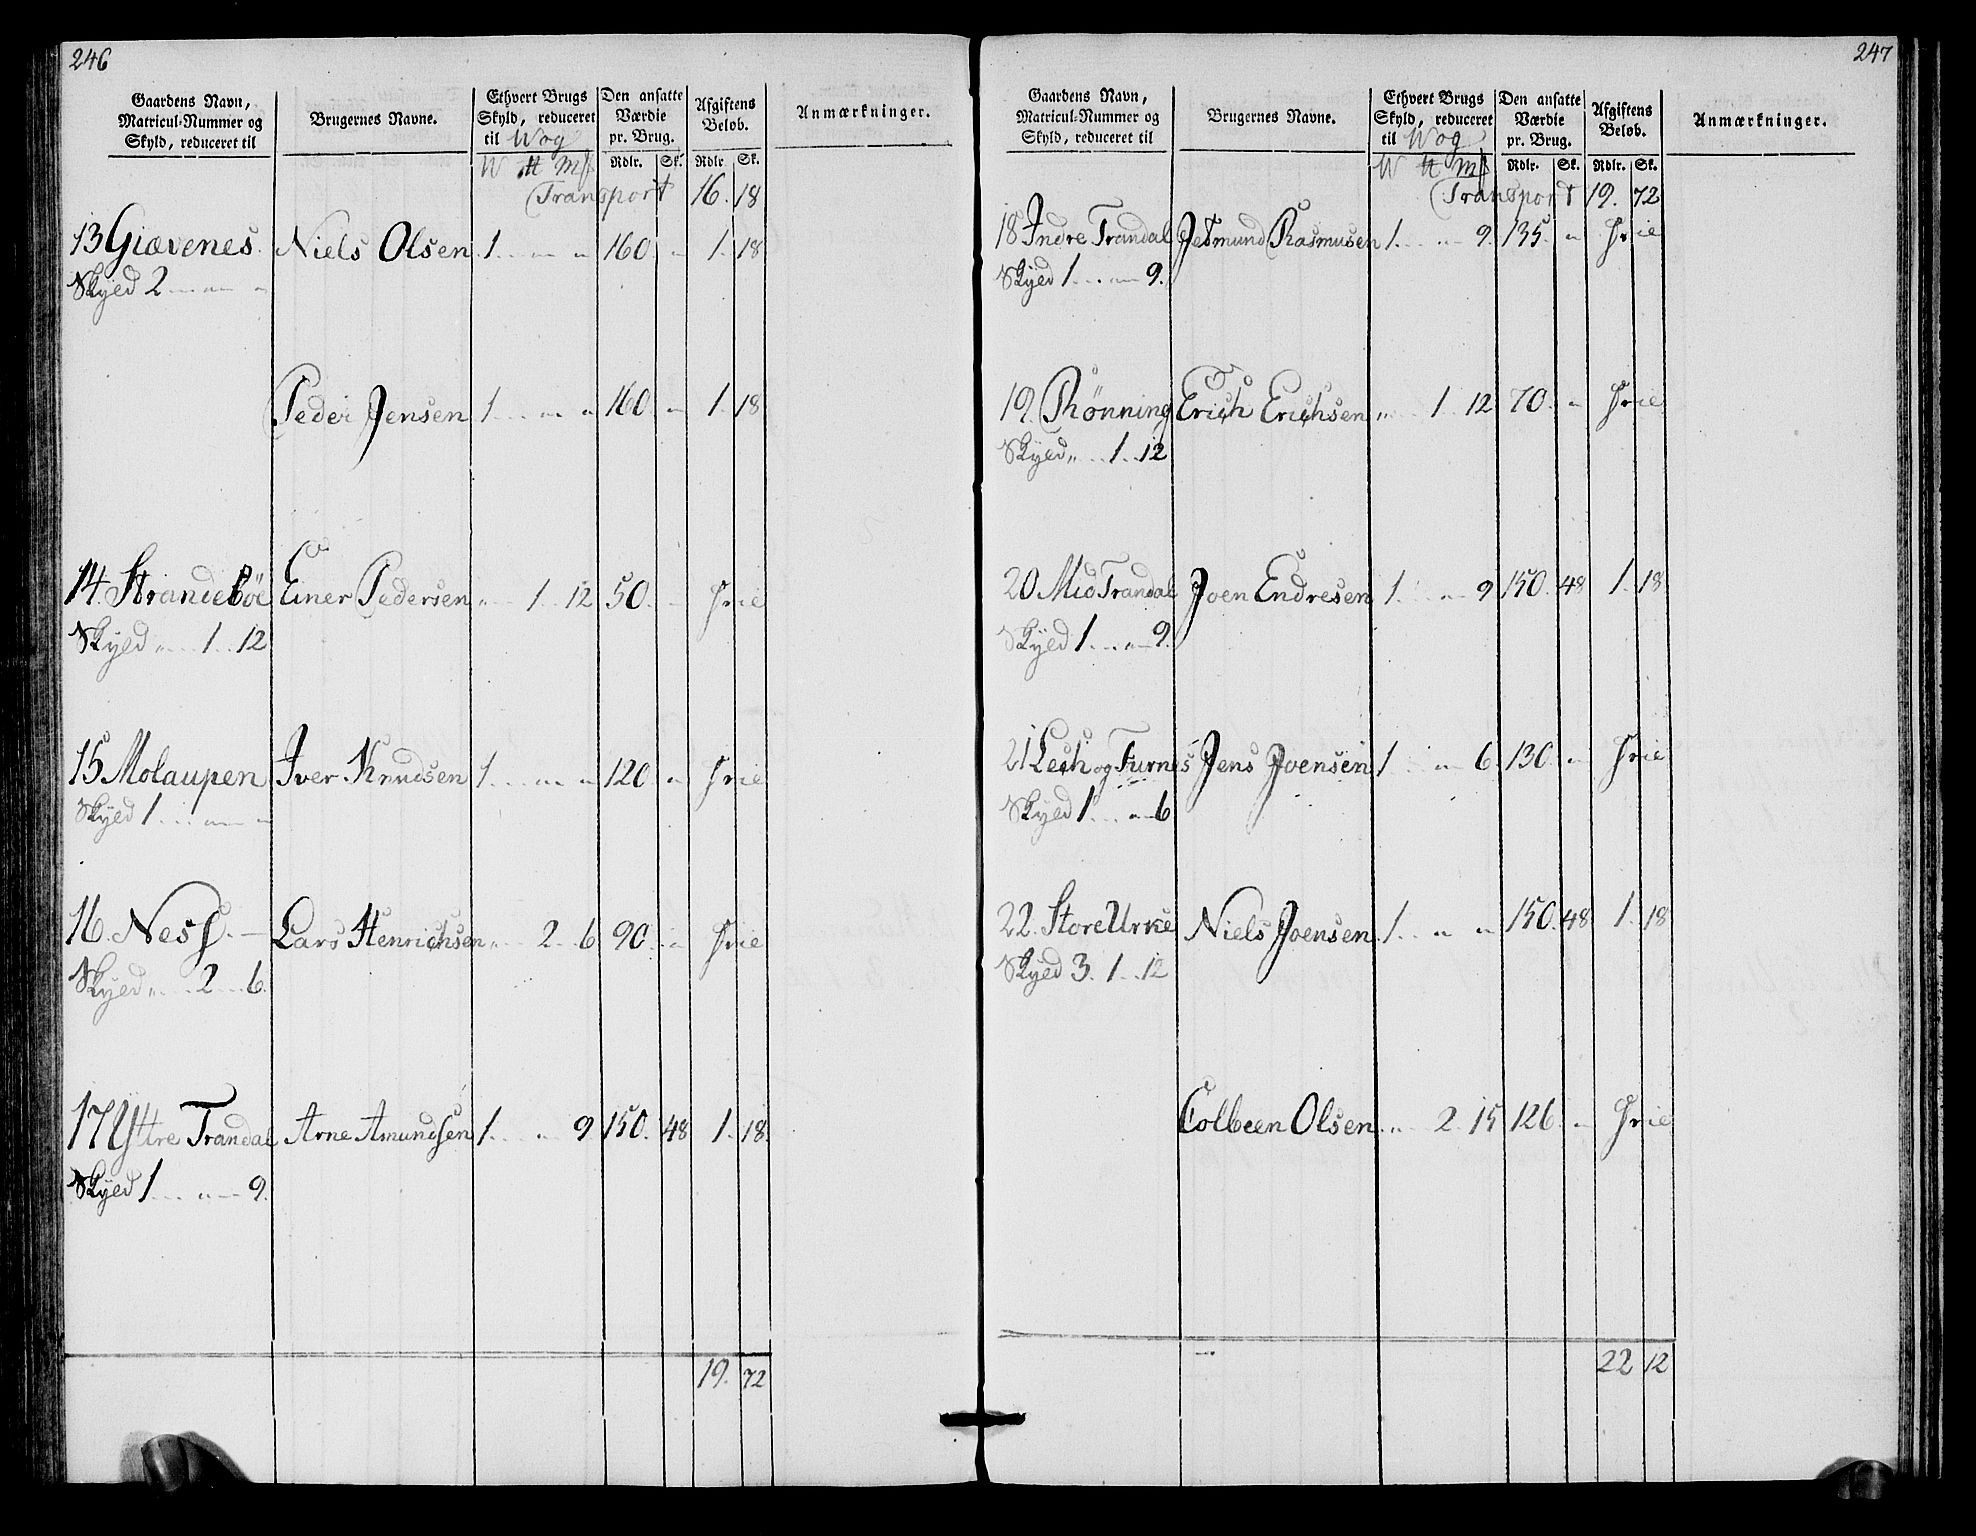 246
Gaardens Navn, Matricul-Nummer og Skyld, reduceret til
Brugernes Navne.
Ethvert Brugs Skyld, reduceret til Wog
W ℔ Mk
Den ansatte Værdie pr. Brug.
Rdlr. Sk.
Afgiftens Beløb.
Rdlr Sk.
Anmærkninger.
Transport 16. 18
13 Giævenes. Niels Olsen 1 .. „ „ 160 „ 1. 18
Skyld 2 .. „ „
Peder Jensen 1 .. „ „ 160. „ 1. 18
14. Strandebøe Einer Pedersen „ .. 1 .. 12 50. „ Frie
Skyld „ .. 1 .. 12
15 Molaupen Iver Knudsen 1 .. „ „ 120 „ Frie
Skyld 1 .. „ „
16. Ness. Lars Henrichsen „ .. 2 .. 6 90. „ Frie
Skyld „ .. 2 .. 6.
17 Yttre Trandal Arne Amundsen 1 .. „ 9 150. 48 1. 18.
Skyld 1 .. „ 9.
19. 72
247
Gaardens Navn, Matricul-Nummer og Skyld, reduceret til
Brugernes Navne.
Ethvert Brugs Skyld, reduceret til Wog
W ℔ Mk
Den ansatte Værdie pr. Brug.
Rdlr. Sk.
Afgiftens Beløb.
Rdlr. Sk.
Anmærkninger.
Transport 19. 72
18 Indre Trandal Jetmund Rasmusen 1 .. „ 9. 135. „ Frie
Skyld 1 .. „ 9.
19. Rønning Erich Erichsen „ 1. 12 70. „ Frie
Skyld „ .. 1 .. 12
20 Mid Trandal Joen Endresen 1 .. „ 9 150. 48 1. 18
Skyld 1 .. „ 9.
21 Leth og Furnes Jens Joensen 1 .. „ 6. 130. „ Frie
Skyld 1 .. „ 6
22. Store Urke Niels Joensen 1 .. „ „ 150. 48 1. 18
Skyld 3. 1 .. 12
Colbeen Olsen „ 2. 15 126 „ Frie
22 12